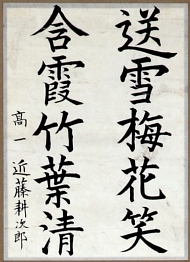 送雪梅花笑
含霞竹葉清
高一 近藤耕次郎